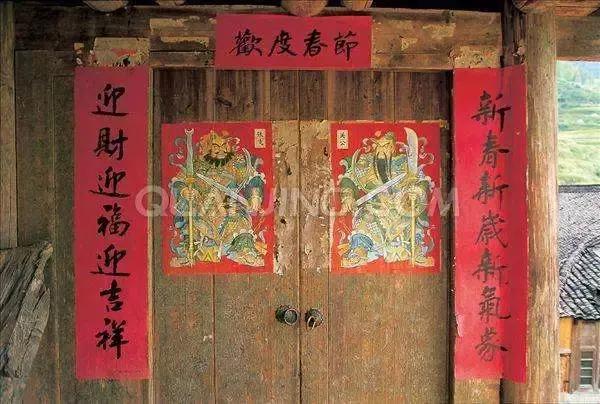 歡度春節
新春新歲新氣象
迎財迎福迎吉祥
关公
QUANJING.COM